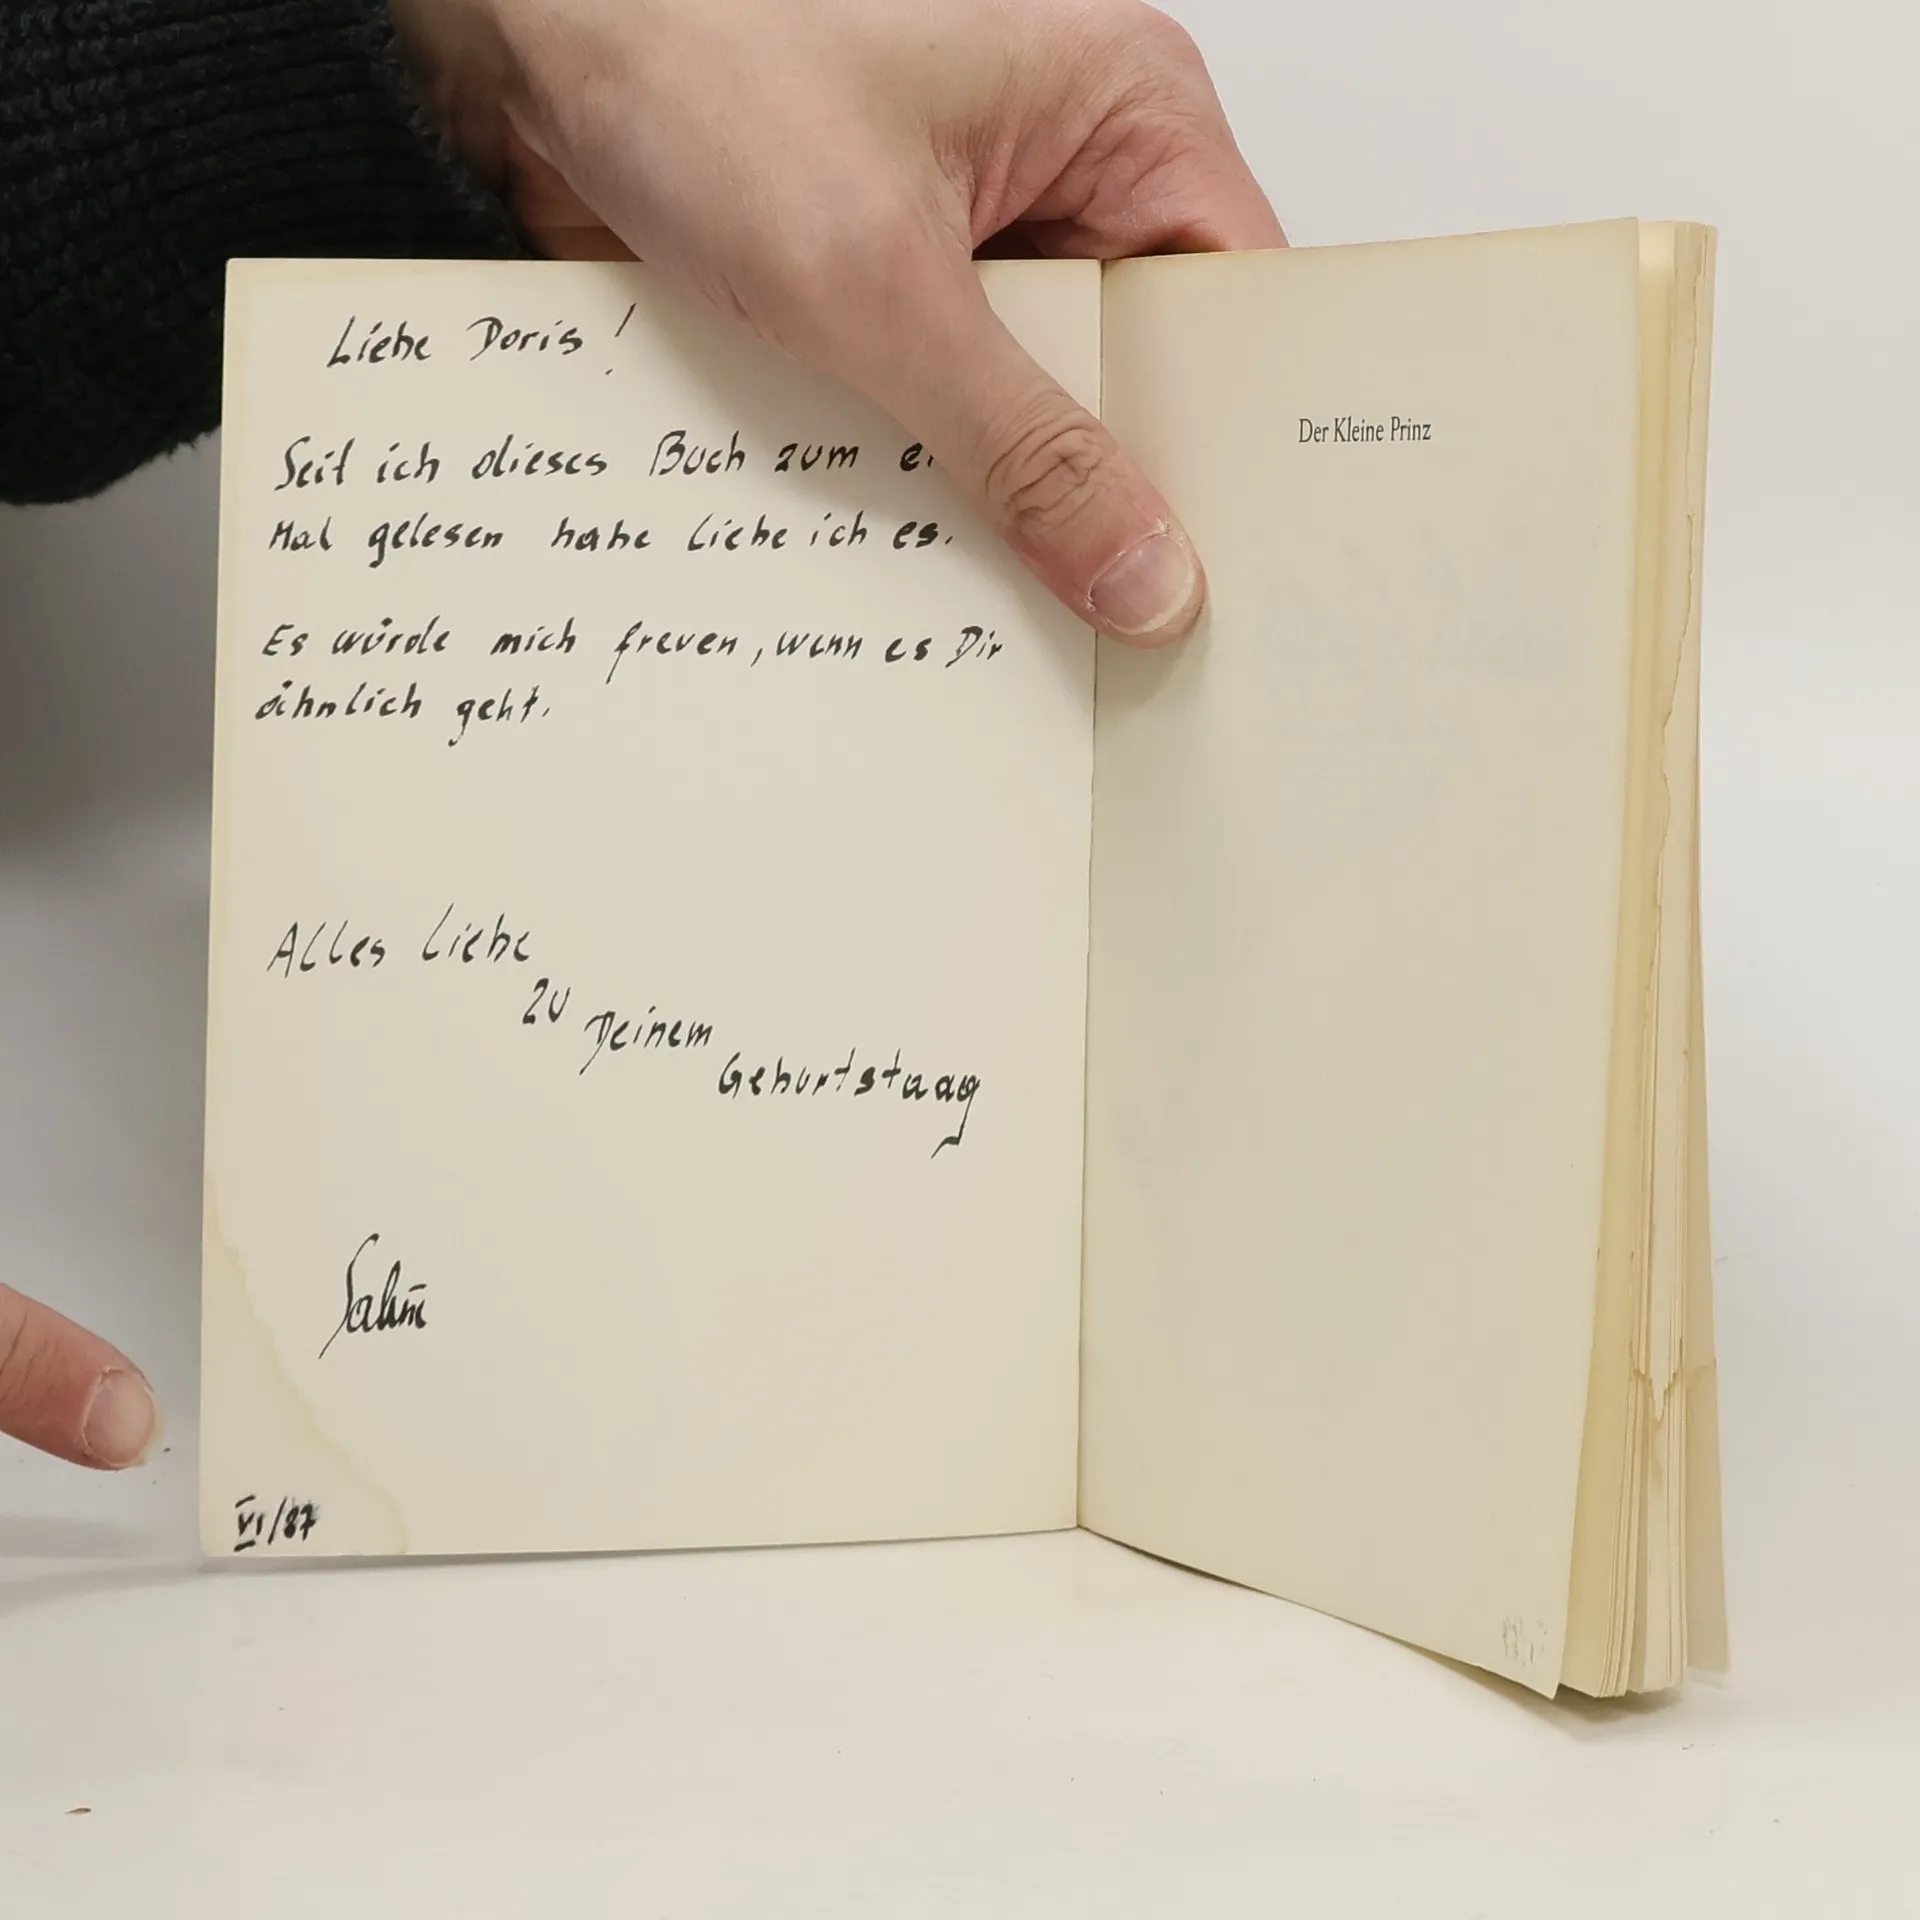 Liebe Doris!
Seit ich dieses Buch zum
Mal gelesen habe liebe ich es.
Es würde mich freuen, wenn es Dir
ähnlich geht.
Alles Liebe
zu
Deinem
Geburtstaag
VI/87
Der Kleine Prinz